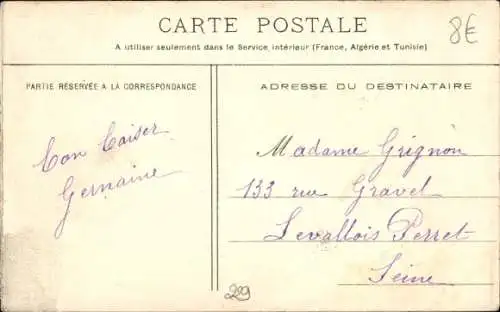 CARTE POSTALE
8€
A utiliser seulement dans le Service intérieur (France, Algérie et Tunisie)
PARTIE RÉSERVÉE A LA CORRESPONDANCE
ADRESSE DU DESTINATAIRE
Bon Baiser
Germaine
Madame Grignon
133 rue Gravel
Levallois Perret
Seine
289